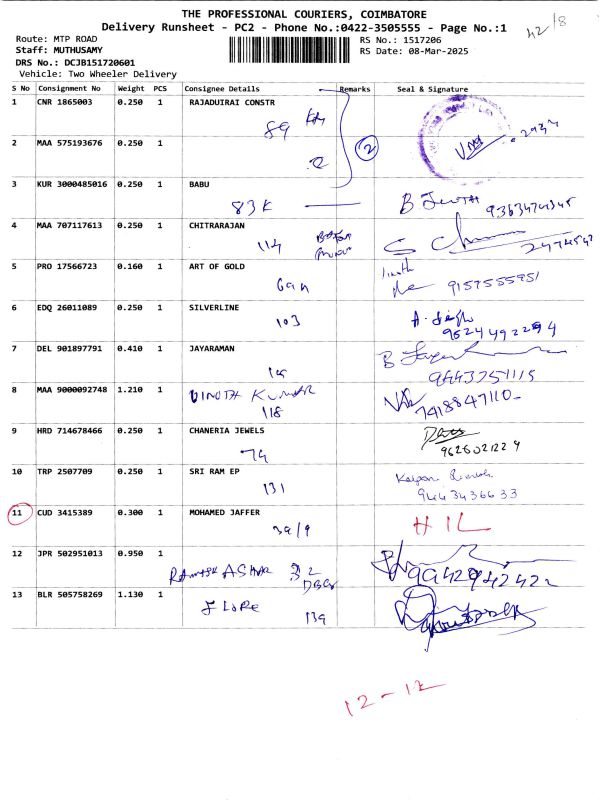 THE PROFESSIONAL COURIERS, COIMBATORE
Delivery Runsheet - PC2 - Phone No.:0422-3505555 - Page No.:1
42/8
Route: MTP ROAD
RS No.: 1517206
Staff: MUTHUSAMY
RS Date: 08-Mar-2025
DRS No.: DCJB151720601
Vehicle: Two Wheeler Delivery
S No Consignment No Weight PCS Consignee Details Remarks Seal & Signature
1 CNR 1865003 0.250 1 RAJADUIRAI CONSTR
89
2 MAA 575193676 0.250 1
2
3 KUR 3000485016 0.250 1 BABU
83K
4 MAA 707117613 0.250 1 CHITRARAJAN
114
5 PRO 17566723 0.160 1 ART OF GOLD
6an 9157555951
6 EDQ 26011089 0.250 1 SILVERLINE
103 9524492294
7 DEL 901897791 0.410 1 JAYARAMAN
9443751115
8 MAA 9000092748 1.210 1 VINOTH KUMAR
118 7418847110-
9 HRD 714678466 0.250 1 CHANERIA JEWELS
79
10 TRP 2507709 0.250 1 SRI RAM EP
131 9443436633
11 CUD 3415389 0.300 1 MOHAMED JAFFER
39/9 HIL
12 JPR 502951013 0.950 1
32 9942942422
13 BLR 505758269 1.130 1
FLORE 139
12-12